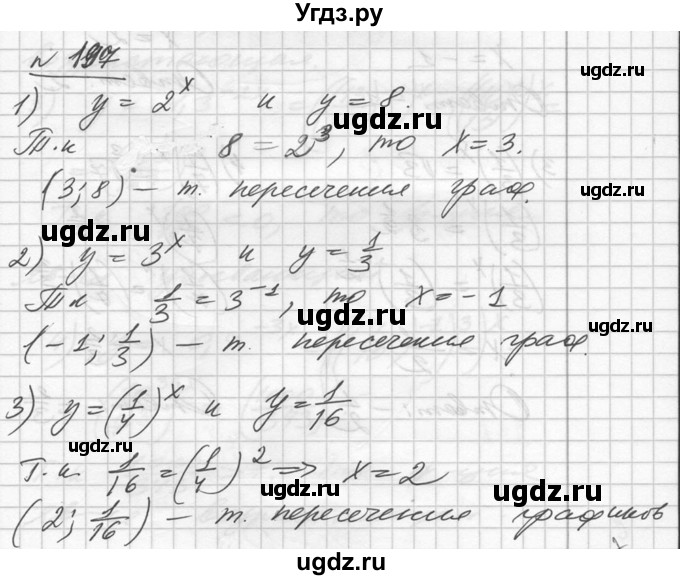 Угдз.ру
№ 197
1) y = 2^x и y = 8.
Т.к 8 = 2^3, то x = 3.
(3; 8) — т. пересечения граф.
2) y = 3^x и y = 1/3
Т.к 1/3 = 3^-1, то x = -1
(-1; 1/3) — т. пересечения граф.
3) y = (1/4)^x и y = 1/16
Т.к. 1/16 = (1/4)^2 => x = 2
(2; 1/16) — т. пересечения графиков
ugdz.ru
ugdz.ru
ugdz.ru
ugdz.ru
ugdz.ru
ugdz.ru
ugdz.ru
ugdz.ru
ugdz.ru
ugdz.ru
ugdz.ru
ugdz.ru